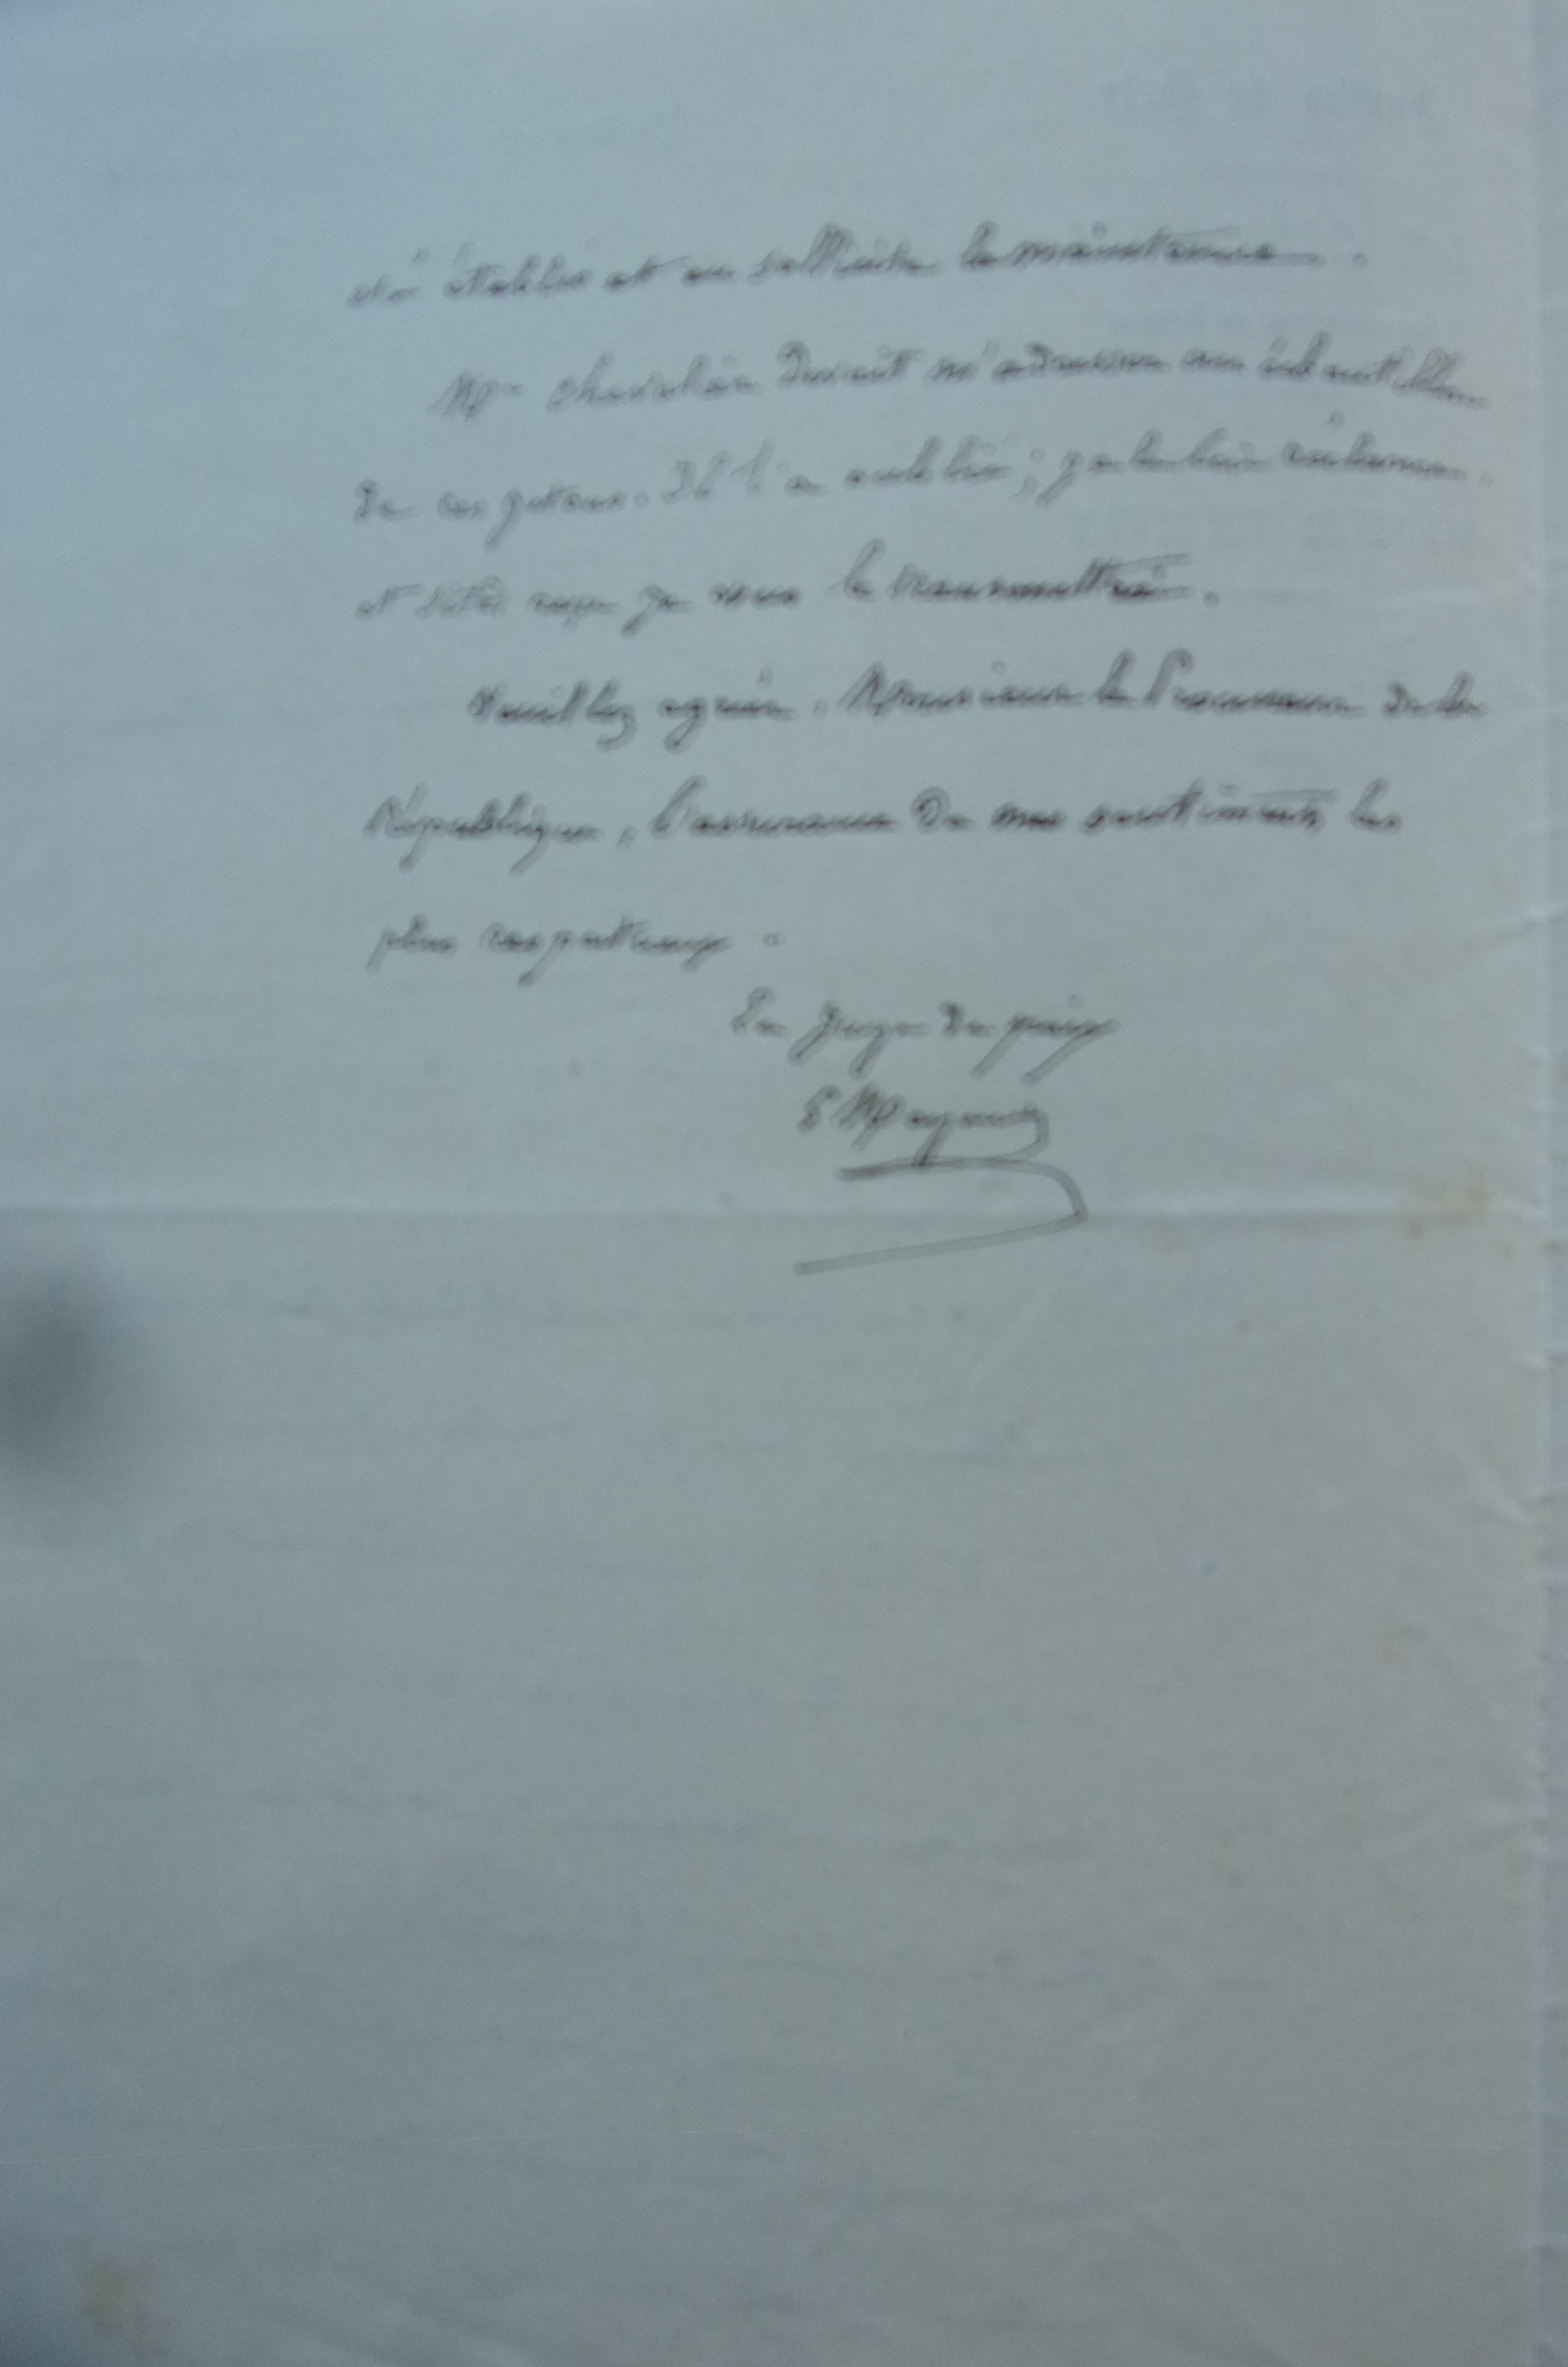 été établis et en sollicite la maintenue.
Mr Chevalier devait m'adresser un échantillon
de ces jetons. Il l'a oublié ; je le lui réclame
et sitôt reçu je vous le transmettrai.
Veuillez agréer, Monsieur le Procureur de la
République, l'assurance de mes sentiments les
plus respectueux.
Le Juge de paix